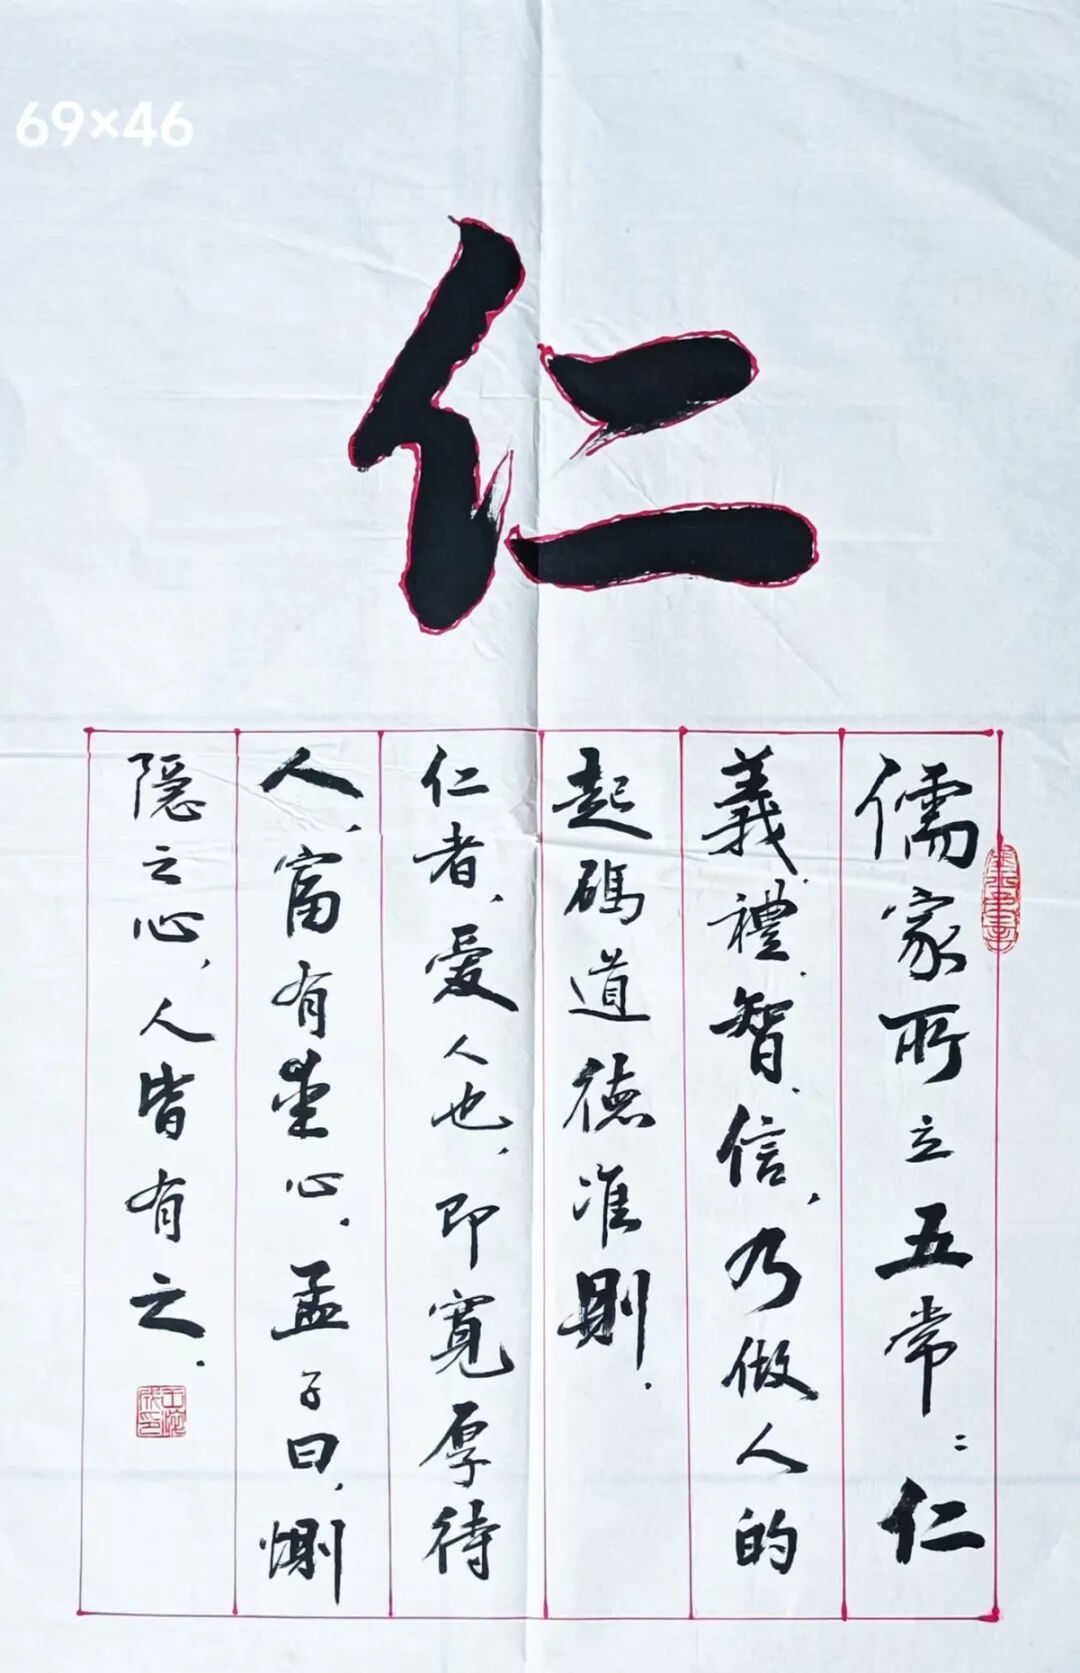 69×46
仁
儒家所立五常：仁
義、禮、智、信，乃做人的
起碼道德准則．
仁者，爱人也，即寬厚待
人，富有爱心．孟子曰，惻
隠之心，人皆有之．